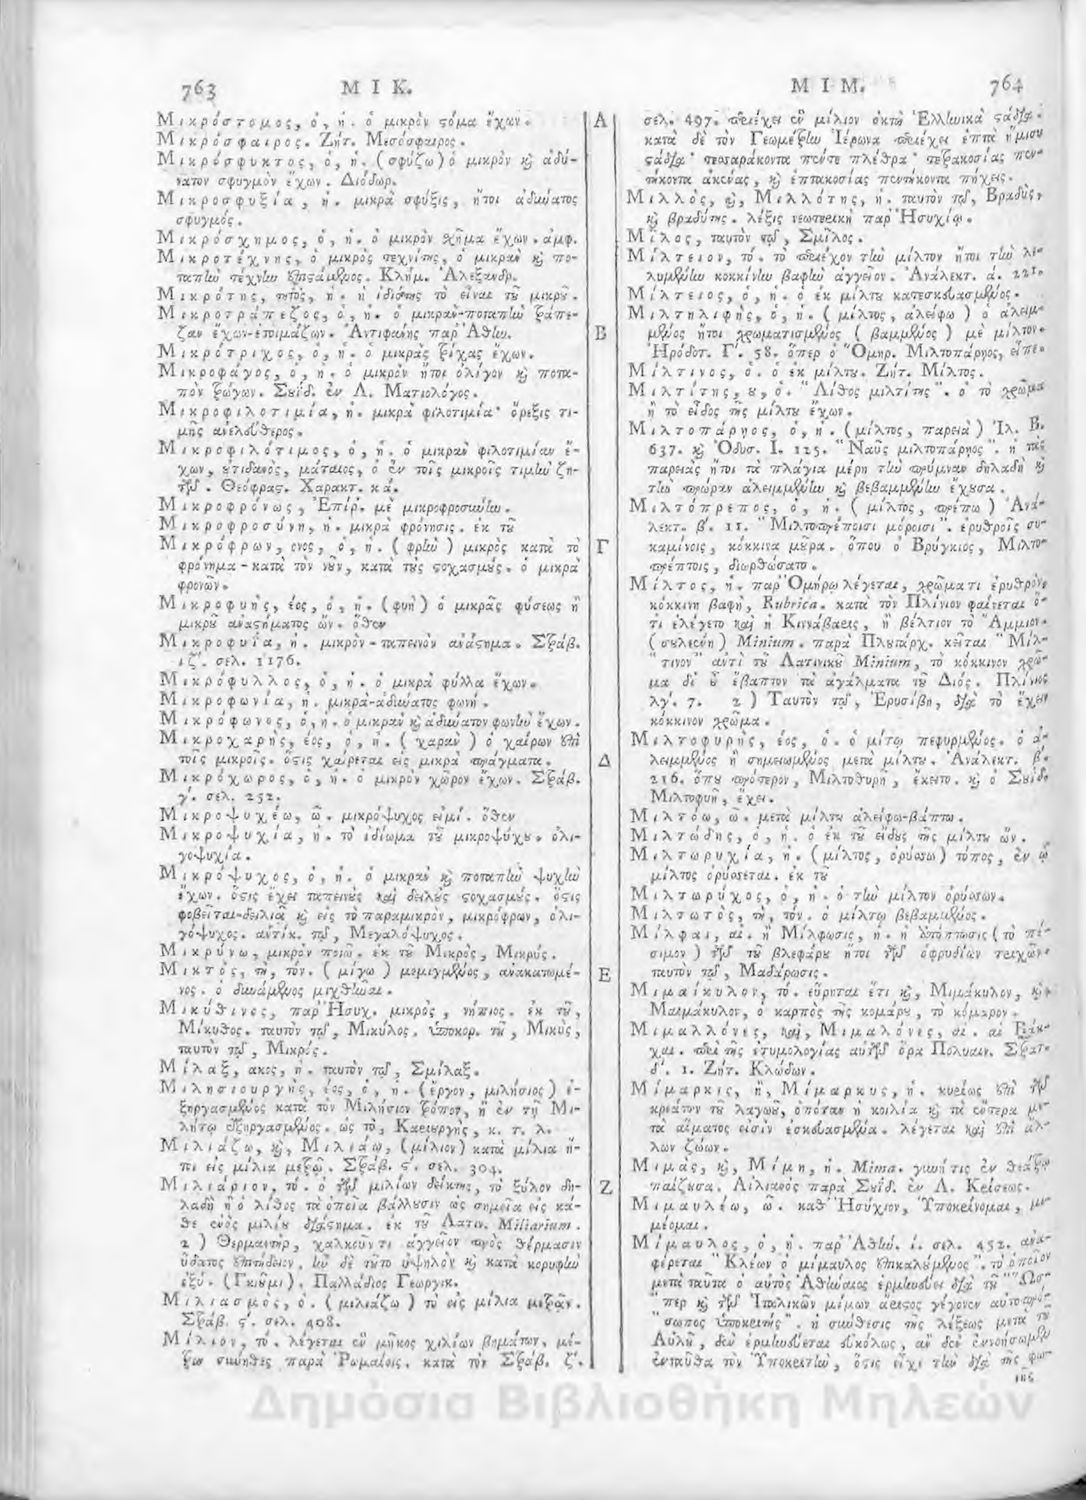 763 ΜΙΚ.
Μικρόστομος, ὁ, ἡ. ὁ μικρὸν στόμα ἔχων.
Μικρόσφαιρος. Ζήτ. Μεσόσφαιρος.
Μικρόσφυκτος, ὁ, ἡ. (σφύζω) ὁ μικρὸν καὶ ἀδύ-
νατον σφυγμὸν ἔχων. Διόδωρ.
Μικροσφυξία, ἡ. μικρὰ σφύξις, ἤτοι ἀδύνατος
σφυγμός.
Μικρόσχημος, ὁ, ἡ. ὁ μικρὸν σχῆμα ἔχων. ἀμφ.
Μικροτέχνης, ὁ μικρὸς τεχνίτης, ὁ μικρὰν καὶ πο-
ταπὴν τέχνην ἐπιστάμενος. Κλήμ. Ἀλεξανδρ.
Μικρότης, τητος, ἡ. ἡ ἰδιότης τὸ εἶναι τοῦ μικροῦ.
Μικροτράπεζος, ὁ, ἡ. ὁ μικρὰν-ποταπὴν τράπε-
ζαν ἔχων-ἑτοιμάζων. Ἀντιφάνης παρ' Ἀθην.
Μικρότριχος, ὁ, ἡ. ὁ μικρὰς τρίχας ἔχων.
Μικροφάγος, ὁ, ἡ. ὁ μικρὸν ἤτοι ὀλίγον καὶ ποτα-
πὸν τρώγων. Σουΐδ. ἐν Λ. Ματιολόγος.
Μικροφιλοτιμία, ἡ. μικρὰ φιλοτιμία· ὄρεξις τι-
μῆς ἀνελεύθερος.
Μικροφιλότιμος, ὁ, ἡ. ὁ μικρὰν φιλοτιμίαν ἔ-
χων, οὐτιδανὸς, μάταιος, ὁ ἐν τοῖς μικροῖς τιμὴν ζη-
τῶν. Θεόφραστ. Χαρακτ. κά.
Μικροφρόνως, Ἐπίρ. μὲ μικροφροσύνην.
Μικροφροσύνη, ἡ. μικρὰ φρόνησις. ἐκ τοῦ
Μικρόφρων, ονος, ὁ, ἡ. (φρὴν) μικρὸς κατὰ τὸ
φρόνημα-κατὰ τὸν νοῦν, κατὰ τοὺς στοχασμούς. ὁ μικρὰ
φρονῶν.
Μικροφυὴς, έος, ὁ, ἡ. (φυὴ) ὁ μικρᾶς φύσεως ἢ
μικροῦ ἀναστήματος ὤν. ὅθεν
Μικροφυΐα, ἡ. μικρὸν-ταπεινὸν ἀνάστημα. Στράβ.
ιζ'. σελ. 1176.
Μικρόφυλλος, ὁ, ἡ. ὁ μικρὰ φύλλα ἔχων.
Μικροφωνία, ἡ. μικρὰ-ἀδύνατος φωνή.
Μικρόφωνος, ὁ, ἡ. ὁ μικρὰν καὶ ἀδύνατον φωνὴν ἔχων.
Μικροχαρὴς, έος, ὁ, ἡ. (χαρὰν) ὁ χαίρων ἐπὶ
τοῖς μικροῖς. ὅστις χαίρεται εἰς μικρὰ πράγματα.
Μικρόχωρος, ὁ, ἡ. ὁ μικρὸν χῶρον ἔχων. Στράβ.
γ'. σελ. 252.
Μικροψυχέω, ῶ. μικρόψυχος εἰμί. ὅθεν
Μικροψυχία, ἡ. τὸ ἰδίωμα τοῦ μικροψύχου. ὀλι-
γοψυχία.
Μικρόψυχος, ὁ, ἡ. ὁ μικρὰν καὶ ποταπὴν ψυχὴν
ἔχων. ὅστις ἔχει ταπεινοὺς καὶ δειλοὺς στοχασμούς. ὅστις
φοβεῖται-δειλιᾷ καὶ εἰς τὸ παραμικρὸν, μικρόφρων, ὀλι-
γόψυχος. ἀντίκ. τῷ, Μεγαλόψυχος.
Μικρύνω, μικρὸν ποιῶ. ἐκ τοῦ Μικρὸς, Μικρύς.
Μικτὸς, τὴ, τόν. (μίγω) μεμιγμένος, ἀνακατωμέ-
νος. ὁ δυνάμενος μιχθῆναι.
Μικύθινος, παρ' Ἡσυχ. μικρὸς, νήπιος. ἐκ τοῦ,
Μίκυθος. ταυτὸν τῷ, Μικύλος. ὑποκορ. τοῦ, Μικὸς,
ταυτὸν τῷ, Μικρός.
Μίλαξ, ακος, ἡ. ταυτὸν τῷ, Σμίλαξ.
Μιλησιουργὴς, έος, ὁ, ἡ. (ἔργον, μιλήσιος) ἐ-
ξηργασμένος κατὰ τὸν Μιλήσιον τρόπον, ἢ ἐν τῇ Μι-
λήτῳ ἐξηργασμένος. ὡς τὸ, Καριουργὴς, κ. τ. λ.
Μιλιάζω, καὶ, Μιλιάω, (μίλιον) κατὰ μίλια ἤ-
τοι εἰς μίλια μετρῶ. Στράβ. ς'. σελ. 304.
Μιλιάριον, τό. ὁ τῶν μιλίων δείκτης, τὸ ξύλον δη-
λαδὴ ἢ ὁ λίθος τὰ ὁποῖα βάλλουσιν ὡς σημεῖα εἰς κά-
θε ἑνὸς μιλίου διάστημα. ἐκ τοῦ Λατιν. Miliarium.
2) Θερμαντὴρ, χαλκοῦν τι ἀγγεῖον πρὸς θέρμασιν
ὕδατος ἐπιτήδειον. ἦν δὲ τοῦτο ὑψηλὸν καὶ κατὰ κορυφὴν
ὀξύ. (Γκιούμι). Παλλάδιος Γεωργικ.
Μιλιασμὸς, ὁ. (μιλιάζω) τὸ εἰς μίλια μετρᾶν.
Στράβ. ς'. σελ. 408.
Μίλιον, τό. λέγεται ἓν μῆκος χιλίων βημάτων, μέ-
τρον σύνηθες παρὰ Ῥωμαίοις. κατὰ τὸν Στράβ. ζ'.
Α
Β
Γ
Δ
Ε
Ζ
ΜΙΜ. 764
σελ. 497. περιέχει ἓν μίλιον ὀκτὼ Ἑλληνικὰ στάδια.
κατὰ δὲ τὸν Γεωμέτρην Ἱέρωνα περιέχει ἑπτὰ ἥμισυ
στάδια· τεσσαράκοντα πέντε πλέθρα· τετρακοσίας πεν-
τήκοντα ἀκαίνας, καὶ ἑπτακοσίας πεντήκοντα πήχεις.
Μιλλὸς, καὶ, Μιλλότης, ἡ. ταυτὸν τῷ, Βραδὺς,
καὶ βραδύτης. λέξις νεωτερικὴ παρ' Ἡσυχίῳ.
Μῖλος, ταυτὸν τῷ, Σμῖλος.
Μιλτεῖον, τό. τὸ περιέχον τὴν μίλτον ἤτοι τὴν λε-
λυμένην κοκκίνην βαφὴν ἀγγεῖον. Ἀνάλεκτ. ά. 221.
Μίλτειος, ὁ, ἡ. ὁ ἐκ μίλτου κατεσκευασμένος.
Μιλτηλιφὴς, ὁ, ἡ. (μίλτος, ἀλείφω) ὁ ἀλειμ-
μένος ἤτοι χρωματισμένος (βαμμένος) μὲ μίλτον.
Ἡρόδοτ. Γ'. 58. ὅπερ ὁ Ὅμηρ. Μιλτοπάρηος, εἶπε.
Μίλτινος, ὁ. ὁ ἐκ μίλτου. Ζήτ. Μίλτος.
Μιλτίτης, ου, ὁ. "Λίθος μιλτίτης". ὁ τὸ χρῶμα
ἢ τὸ εἶδος τῆς μίλτου ἔχων.
Μιλτοπάρηος, ὁ, ἡ. (μίλτος, παρειὰ) Ἰλ. Β.
637. καὶ Ὀδυσ. Ι. 125. "Ναῦς μιλτοπάρηος". ἡ τὰς
παρειὰς ἤτοι τὰ πλάγια μέρη τὴν πρύμναν δηλαδὴ καὶ
τὴν πρώραν ἀλειμμένην καὶ βεβαμμένην ἔχουσα.
Μιλτόπρεπος, ὁ, ἡ. (μίλτος, πρέπω) Ἀνά-
λεκτ. β'. 11. "Μιλτοπρέποισι μόροισι". ἐρυθροῖς συ-
καμίνοις, κόκκινα μοῦρα. ὅπου ὁ Βρύγκιος, Μιλτο-
πρέπτοις, διωρθώσατο.
Μίλτος, ἡ. παρ' Ὁμήρῳ λέγεται, χρῶμά τι ἐρυθρὸν,
κόκκινη βαφὴ, Rubrica. κατὰ τὸν Πλίνιον φαίνεται ὅ-
τι ἐλέγετο καὶ ἡ Κιννάβαρις, ἢ βέλτιον τὸ Ἄμμιον.
(συλιγὲν) Minium. παρὰ Πλουτάρχ. κεῖται "Μίλ-
"τινον" ἀντὶ τοῦ Λατινικοῦ Minium, τὸ κόκκινον χρῶ-
μα δι' οὗ ἔβαπτον τὰ ἀγάλματα τοῦ Διός. Πλίνιος
λγ'. 7. 2) Ταυτὸν τῷ, Ἐρυσίβη, διὰ τὸ ἔχειν
κόκκινον χρῶμα.
Μιλτοφυρὴς, έος, ὁ. ὁ μίτῳ πεφυρμένος. ὁ ἀ-
λειμμένος ἢ σημειωμένος μετὰ μίλτου. Ἀνάλεκτ. β.
216. ὅπου πρότερον, Μιλτοθυρῆ, ἔκειτο. καὶ ὁ Σουΐδ.
Μιλτοφυῆ, ἔχει.
Μιλτόω, ῶ. μετὰ μίλτου ἀλείφω-βάπτω.
Μιλτώδης, ὁ, ἡ. ὁ ἐκ τοῦ εἴδους τῆς μίλτου ὤν.
Μιλτωρυχία, ἡ. (μίλτος, ὀρύσσω) τόπος, ἐν ᾧ
μίλτος ὀρύσσεται. ἐκ τοῦ
Μιλτωρύχος, ὁ, ἡ. ὁ τὴν μίλτον ὀρύσσων.
Μιλτωτὸς, τὴ, τόν. ὁ μίλτῳ βεβαμμένος.
Μίλφαι, αἱ. ἢ Μίλφωσις, ἡ. ἡ ἀπόπτωσις (τὸ πέ-
σιμον) τῶν τοῦ βλεφάρου ἤτοι τῶν ὀφρυδίων τριχῶν.
ταυτὸν τῷ, Μαδάρωσις.
Μιμαίκυλον, τό. εὕρηται ἔτι καὶ, Μιμάκυλον, καὶ
Μαιμάκυλον, ὁ καρπὸς τῆς κομάρου, τὸ κόμαρον.
Μιμαλλόνες, καὶ, Μιμαλόνες, αἱ. αἱ Βάκ-
χαι. περὶ τῆς ἐτυμολογίας αὐτῶν ὅρα Πολυαιν. Στρατ.
δ'. 1. Ζήτ. Κλώδων.
Μίμαρκις, ἢ, Μίμαρκυς, ἡ. κυρίως ἐπὶ τῶν
κρεάτων τοῦ λαγωοῦ, ὁπόταν ἡ κοιλία καὶ τὰ ἔντερα με-
τὰ αἵματος εἰσὶν ἐσκευασμένα. λέγεται καὶ ἐπὶ ἄλ-
λων ζώων.
Μιμὰς, καὶ, Μίμη, ἡ. Mima. γυνή τις ἐν θεάτρῳ
παίζουσα. Αἰλιανὸς παρὰ Σουΐδ. ἐν Λ. Κρίσεως.
Μιμαυλέω, ῶ. καθ' Ἡσύχιον, Ὑποκρίνομαι, μι-
μέομαι.
Μίμαυλος, ὁ, ἡ. παρ' Ἀθην. ί. σελ. 452. ἀνα-
φέρεται "Κλέων ὁ μίμαυλος ἐπικαλούμενος". τὸ ὁποῖον
μετὰ ταῦτα ὁ αὐτὸς Ἀθήναιος ἑρμηνεύει διὰ τοῦ "Ὅσ-
"περ καὶ τῶν Ἰταλικῶν μίμων ἄριστος γέγονεν αὐτοπρό-
"σωπος ὑποκριτής". ἡ σύνθεσις τῆς λέξεως μετὰ τοῦ
Αὐλοῦ, δὲν ἑρμηνεύεται εὐκόλως, ἂν δὲν ἐννοήσωμεν
ἐνταῦθα τὸν Ὑποκριτὴν, ὅστις εἶχε τὴν διὰ τῆς φω-
νῆς
Δημόσια Βιβλιοθήκη Μηλεών